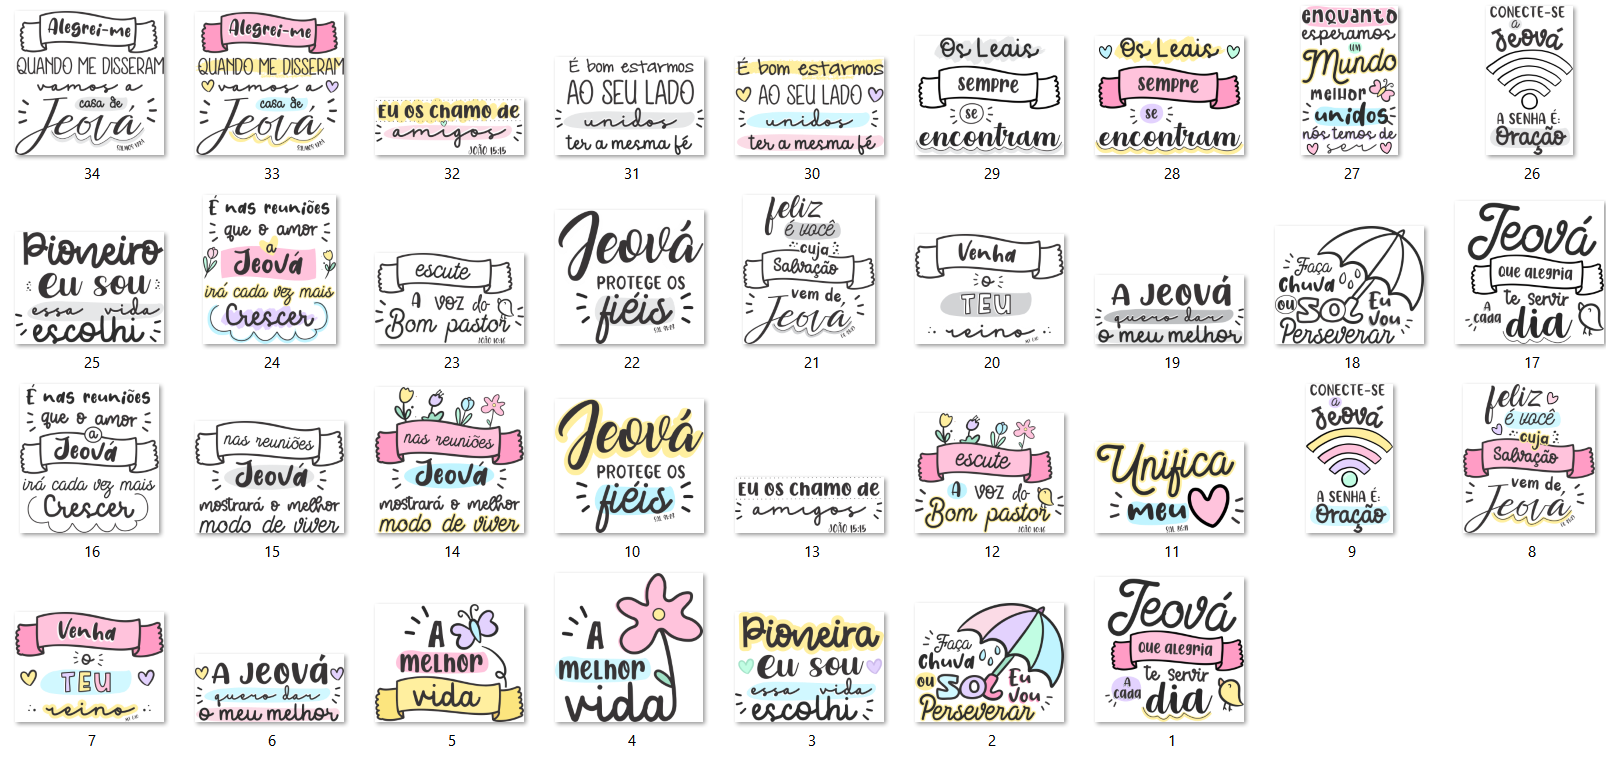 Alegrei-me
QUANDO ME DISSERAM
vamos a
casa de
Jeová
SALMOS 122:1
34
Alegrei-me
QUANDO ME DISSERAM
vamos a
casa de
Jeová
SALMOS 122:1
33
Eu os chamo de
amigos
JOÃO 15:15
32
É bom estarmos
AO SEU LADO
unidos
ter a mesma fé
31
É bom estarmos
AO SEU LADO
unidos
ter a mesma fé
30
Os Leais
sempre
se
encontram
29
Os Leais
sempre
se
encontram
28
enquanto
esperamos
um
Mundo
melhor
unidos
nós temos de
ser
27
CONECTE-SE
a
Jeová
A SENHA É:
Oração
26
Pioneiro
eu sou
essa vida
escolhi
25
É nas reuniões
que o amor
a
Jeová
irá cada vez mais
Crescer
24
escute
A voz do
Bom pastor
JOÃO 10:16
23
Jeová
PROTEGE OS
fiéis
22
feliz
é você
cuja
Salvação
vem de
Jeová
21
Venha
o
TEU
reino
20
A JEOVÁ
quero dar
o meu melhor
19
Faça
chuva
ou
SOL
Eu
vou
Perseverar
18
Jeová
que alegria
te servir
A
cada
dia
17
É nas reuniões
que o amor
a
Jeová
irá cada vez mais
Crescer
16
nas reuniões
Jeová
mostrará o melhor
modo de viver
15
nas reuniões
Jeová
mostrará o melhor
modo de viver
14
Jeová
PROTEGE OS
fiéis
10
Eu os chamo de
amigos
JOÃO 15:15
13
escute
A voz do
Bom pastor
JOÃO 10:16
12
Unifica
meu
SAL. 86:11
11
CONECTE-SE
a
Jeová
A SENHA É:
Oração
9
feliz
é você
cuja
Salvação
vem de
Jeová
8
Venha
o
TEU
reino
7
A JEOVÁ
quero dar
o meu melhor
6
A
melhor
vida
5
A
melhor
vida
4
Pioneira
eu sou
essa vida
escolhi
3
Faça
chuva
ou
SOL
Eu
vou
Perseverar
2
Jeová
que alegria
te servir
A
cada
dia
1